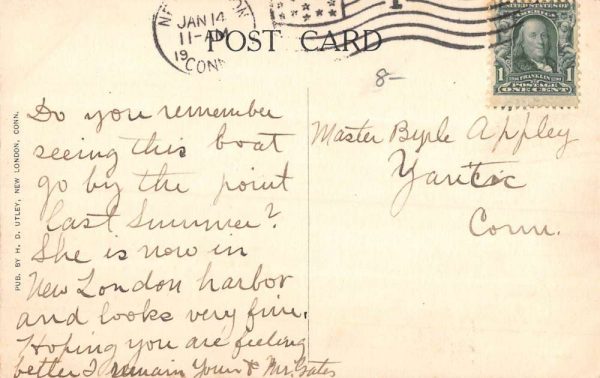 NEW LONDON
JAN 14
11-AM
19
CONN
1
POST CARD
UNITED STATES OF AMERICA
FRANKLIN
1 POSTAGE 1
ONE CENT
8-
Do you remember
seeing this boat
go by the point
last Summer?
She is now in
New London harbor
and looks very fine.
Hoping you are feeling
better I remain Your Mr. Gates
Master Appley
Yantic
Conn.
PUB. BY H. D. UTLEY, NEW LONDON, CONN.